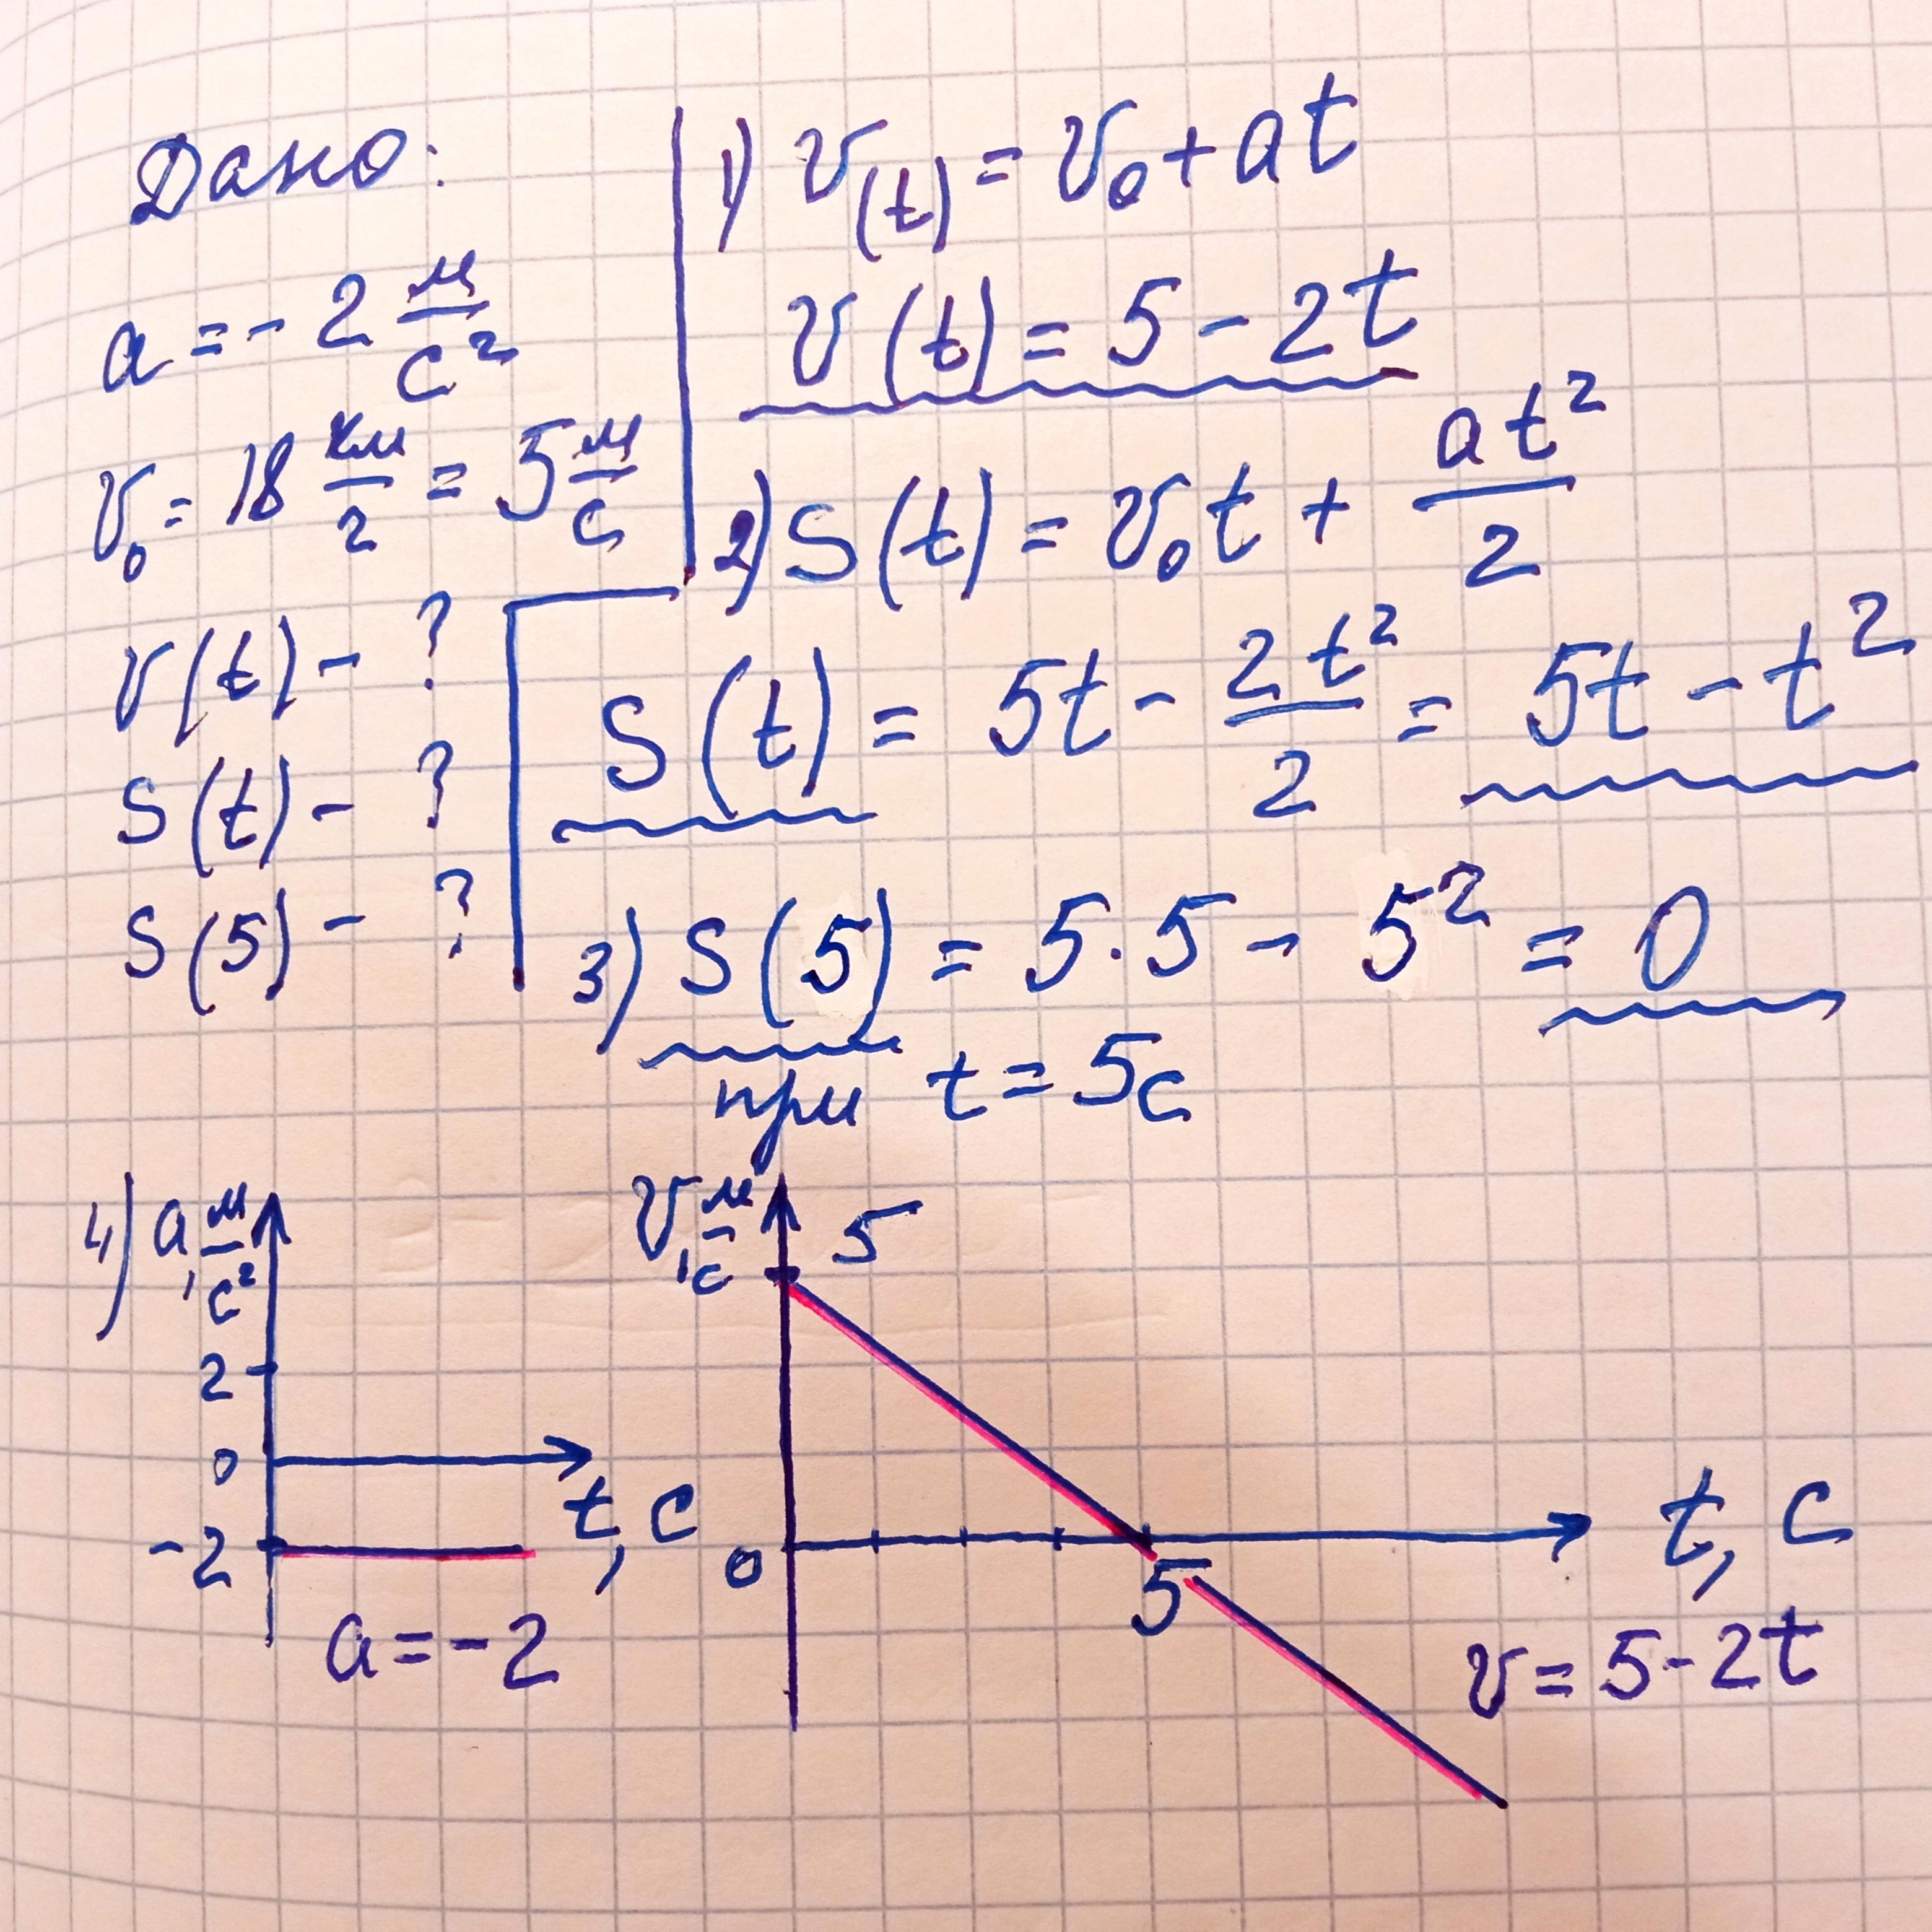 Дано:
a = - 2 м/с²
v₀ = 18 км/г = 5 м/с
v(t) - ?
S(t) - ?
S(5) - ?
1) v(t) = v₀ + at
v(t) = 5 - 2t
2) S(t) = v₀t + at²/2
S(t) = 5t - 2t²/2 = 5t - t²
3) S(5) = 5·5 - 5² = 0
при t = 5с
4) a, м/с²
2
0
-2
t, с
a = -2
v, м/с
5
0
5
t, с
v = 5 - 2t